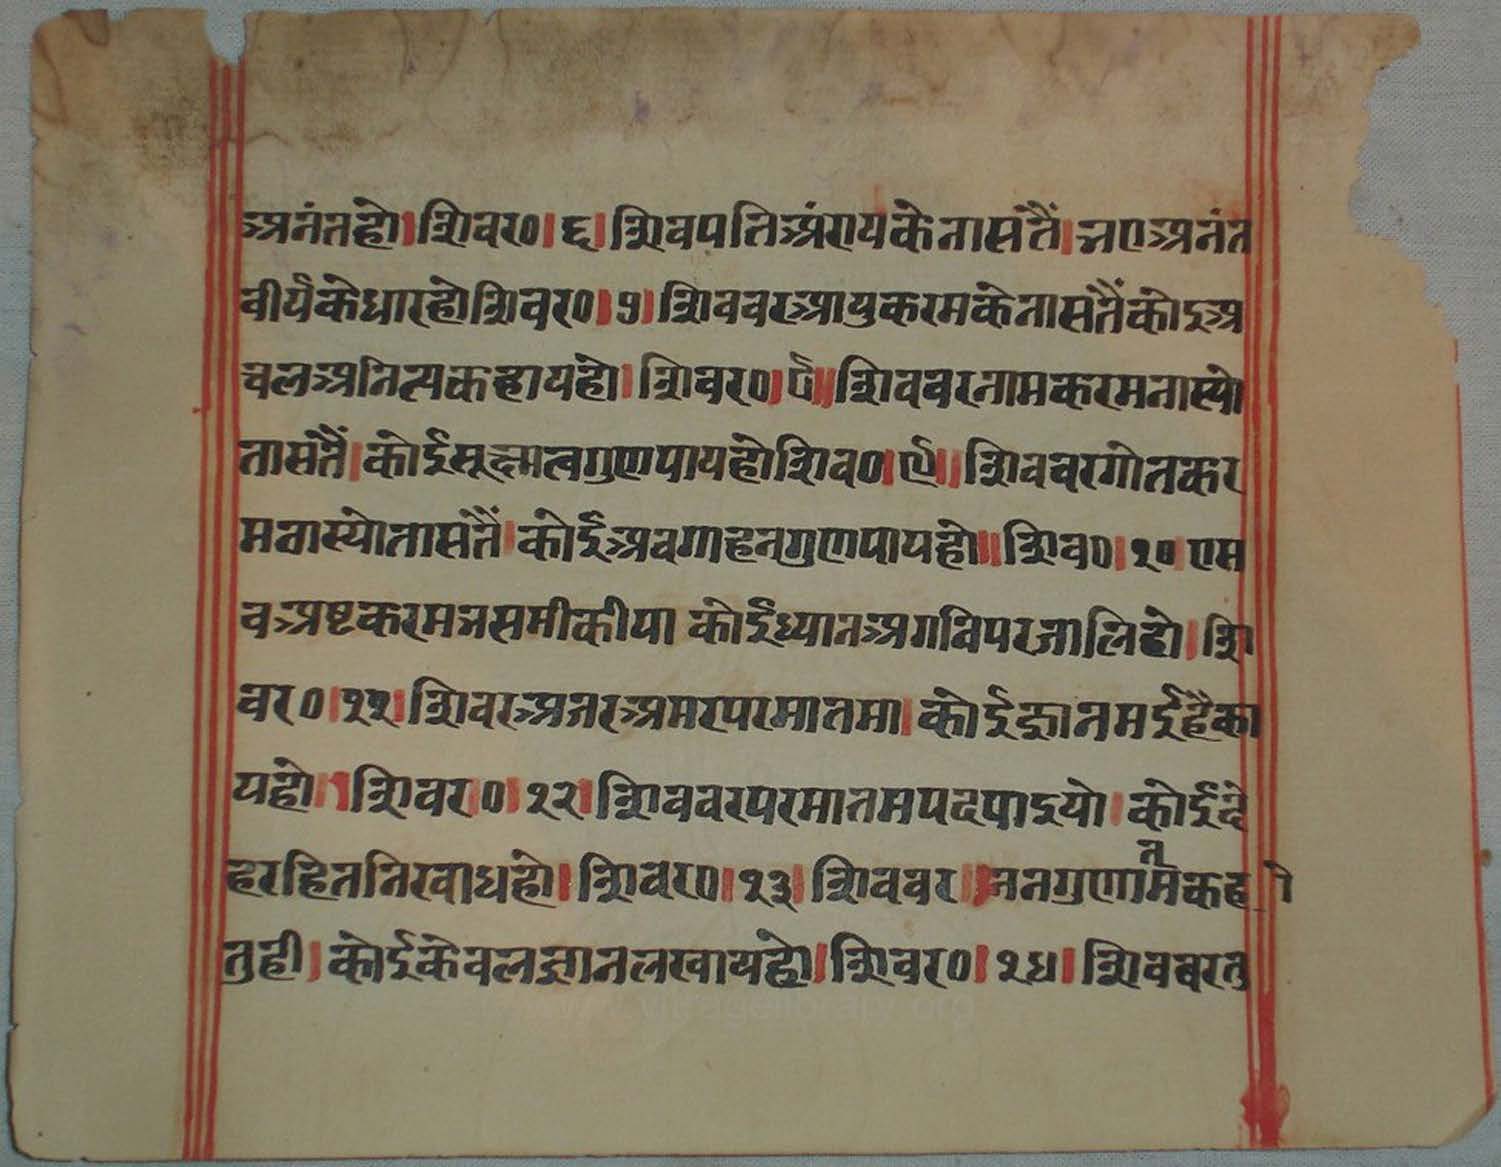 अनंतहो।शिवर०।६।शिवपतिअंरायकेनासंतैं।भएअनंत
वीर्यकेधारहोशिवर०।७।शिववरआयुकरमकेनासंतैंकोइअ
चलअनित्यकहायहो।शिवर०।८॥शिववरनामकरमनास्यो
तासंतैं।कोईसूक्ष्मत्वगुणपायहोशिव०।९॥शिववरगोतकर
मनास्योतासंतैं।कोईअवगाहनगुणपायहो॥शिव०।१०।एम
वअष्टकरमभसमीकीया कोईध्यानअगनिपरजालिहो।शि
वर०।११।शिवरअजरअमरपरमातमा।कोईज्ञानमईहैका
यहो।शिवर।०।१२।शिववरपरमातमपदपाइयो।कोईदे
हरहितनिरवाधहो।शिवर०।१३।शिववर।ननगुणातमकह ो
तुही।कोईकेवलज्ञानलखायहो।शिवर०।१४।शिववरतु